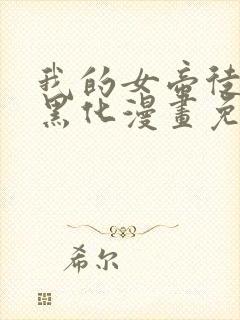 我的女帝徒
黑化漫畫免
希尔